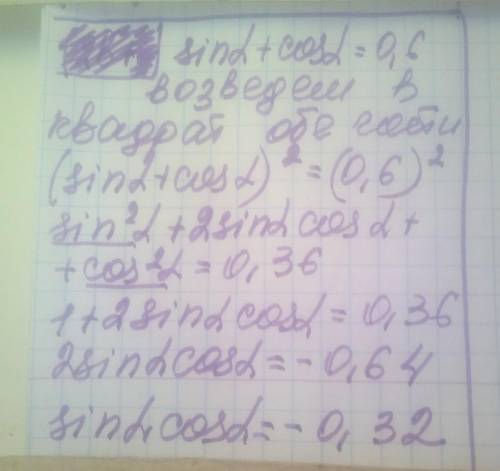 sinα + cosα = 0,6
возведем в
квадрат обе части
(sinα + cosα)² = (0,6)²
sin²α + 2sinα cosα +
+ cos²α = 0,36
1 + 2sinα cosα = 0,36
2sinα cosα = - 0,64
sinα cosα = - 0,32